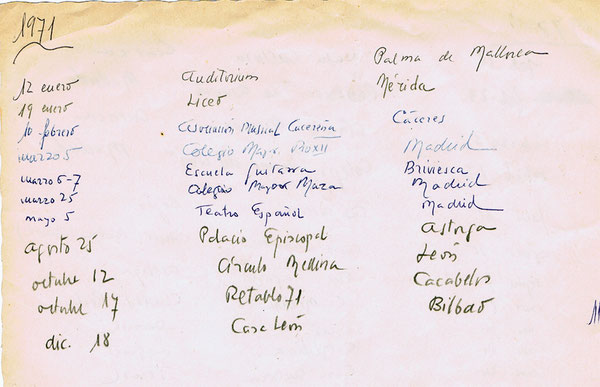 1971
12 enero Auditorium Palma de Mallorca
19 enero Liceo Mérida
10 febrero Asociación Musical Cacereña Cáceres
marzo 5 Colegio Mayor Pio XII Madrid
marzo 6-7 Escuela Guitarra Briviesca
marzo 25 Colegio Mayor Madrid
mayo 5 Teatro Español Madrid
agosto 25 Palacio Episcopal Astorga
octubre 12 Círculo Medina León
octubre 17 Retablo 71 Cacabelos
dic. 18 Casa León Bilbao